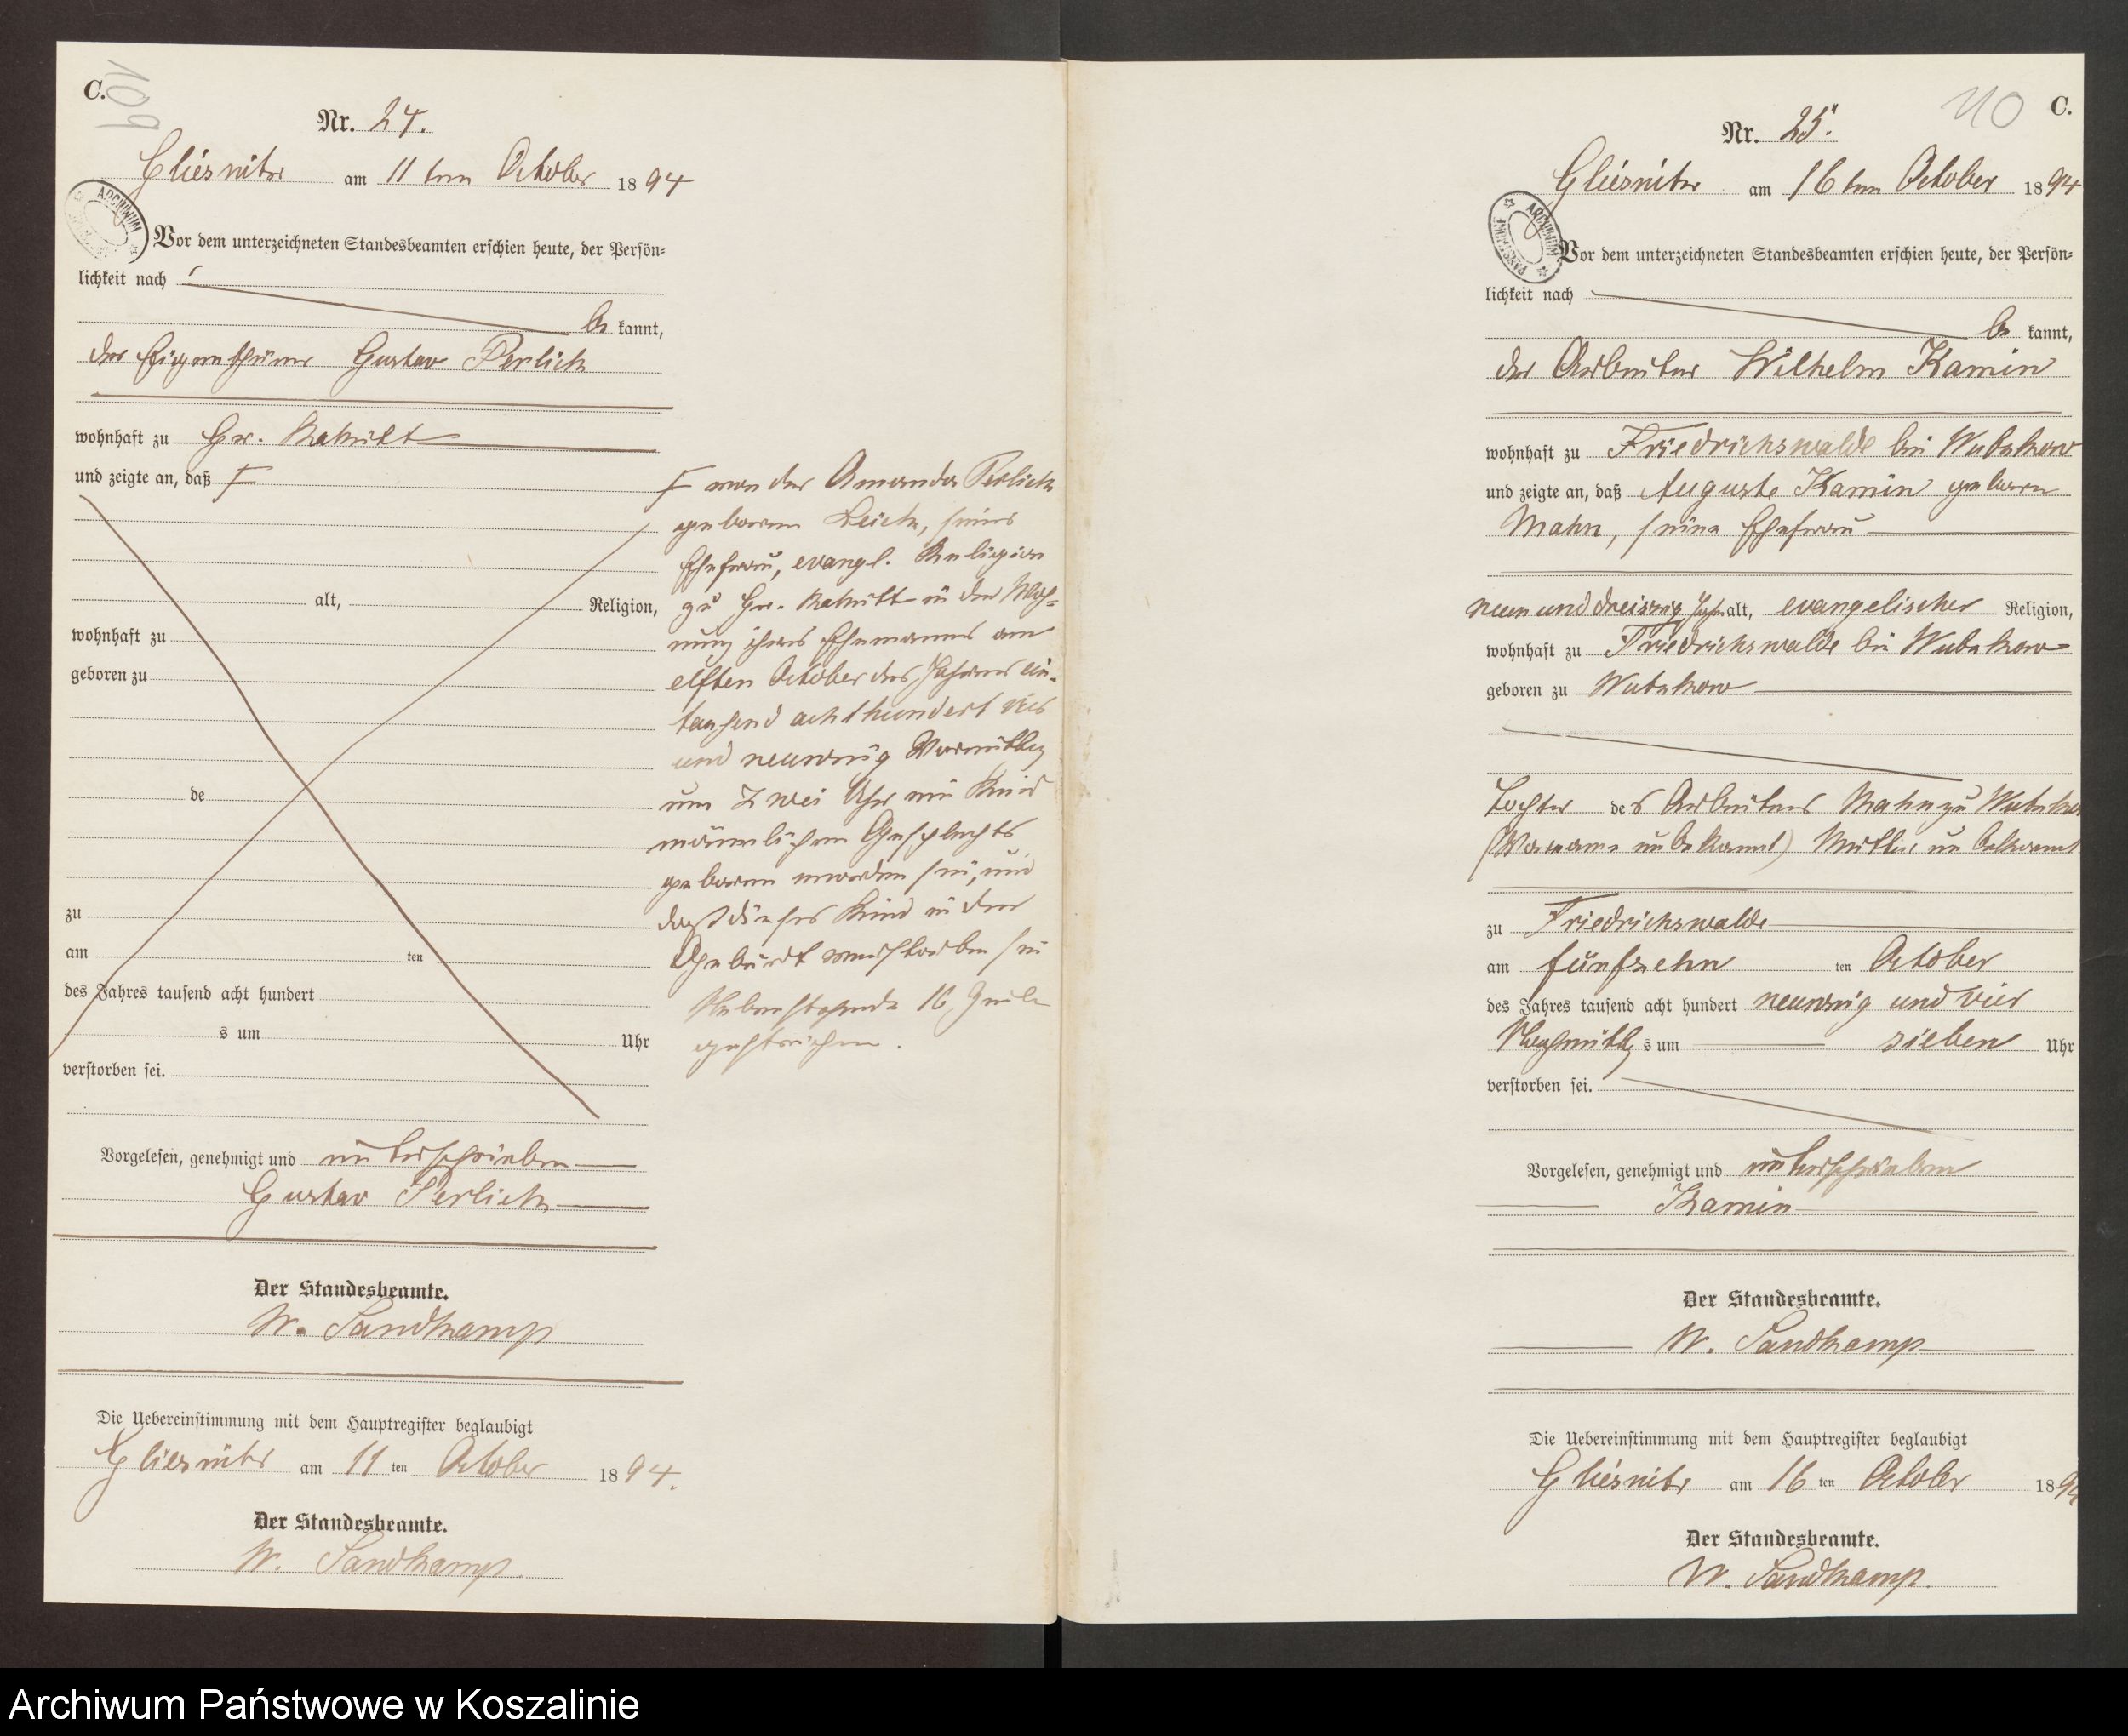 C.
109
Nr. 24.
Gliesnitz am 11 ten October 1894
ARCHIWUM
Vor dem unterzeichneten Standesbeamten erschien heute, der Persön-
lichkeit nach
be kannt,
der Eigenthümer Gustav Perlick
wohnhaft zu Gr.
und zeigte an, daß F
alt, Religion,
wohnhaft zu
geboren zu
de
zu
am ten
des Jahres tausend acht hundert
s um Uhr
verstorben sei.
F von der Amanda Perlick
geborenen seiner
Ehefrau, evangl. Religion
zu Gr. in der Woh-
nung ihres Ehemannes am
elften October des Jahres ein-
tausend achthundert vier
und neunzig Vormittag
um zwei Uhr ein Kind
männlichen Geschlechts
geboren worden sei, und
daß dieses Kind in der
Geburt verstorben sei
Nebenstehende 16 Zeilen
gestrichen.
Vorgelesen, genehmigt und unterschrieben
Gustav Perlick
Der Standesbeamte.
W. Sandkamp
Die Uebereinstimmung mit dem Hauptregister beglaubigt
Gliesnitz am 11 ten October 1894.
Der Standesbeamte.
W. Sandkamp.
110
C.
Nr. 25.
Gliesnitz am 16 ten October 1894
ARCHIWUM
Vor dem unterzeichneten Standesbeamten erschien heute, der Persön-
lichkeit nach
be kannt,
der Arbeiter Wilhelm Kamin
wohnhaft zu Friedrichswalde bei
und zeigte an, daß Auguste Kamin geborene
Mahn, seine Ehefrau
neun und dreiszig Jahr alt, evangelischer Religion,
wohnhaft zu Friedrichswalde bei
geboren zu
Tochter des Arbeiters Mahn zu
(Vorname unbekannt) Mutter unbekannt
zu Friedrichswalde
am fünfzehn ten October
des Jahres tausend acht hundert neunzig und vier
Nachmittags um sieben Uhr
verstorben sei.
Vorgelesen, genehmigt und unterschrieben
Kamin
Der Standesbeamte.
W. Sandkamp
Die Uebereinstimmung mit dem Hauptregister beglaubigt
Gliesnitz am 16 ten October 1894
Der Standesbeamte.
W. Sandkamp.
Archiwum Państwowe w Koszalinie